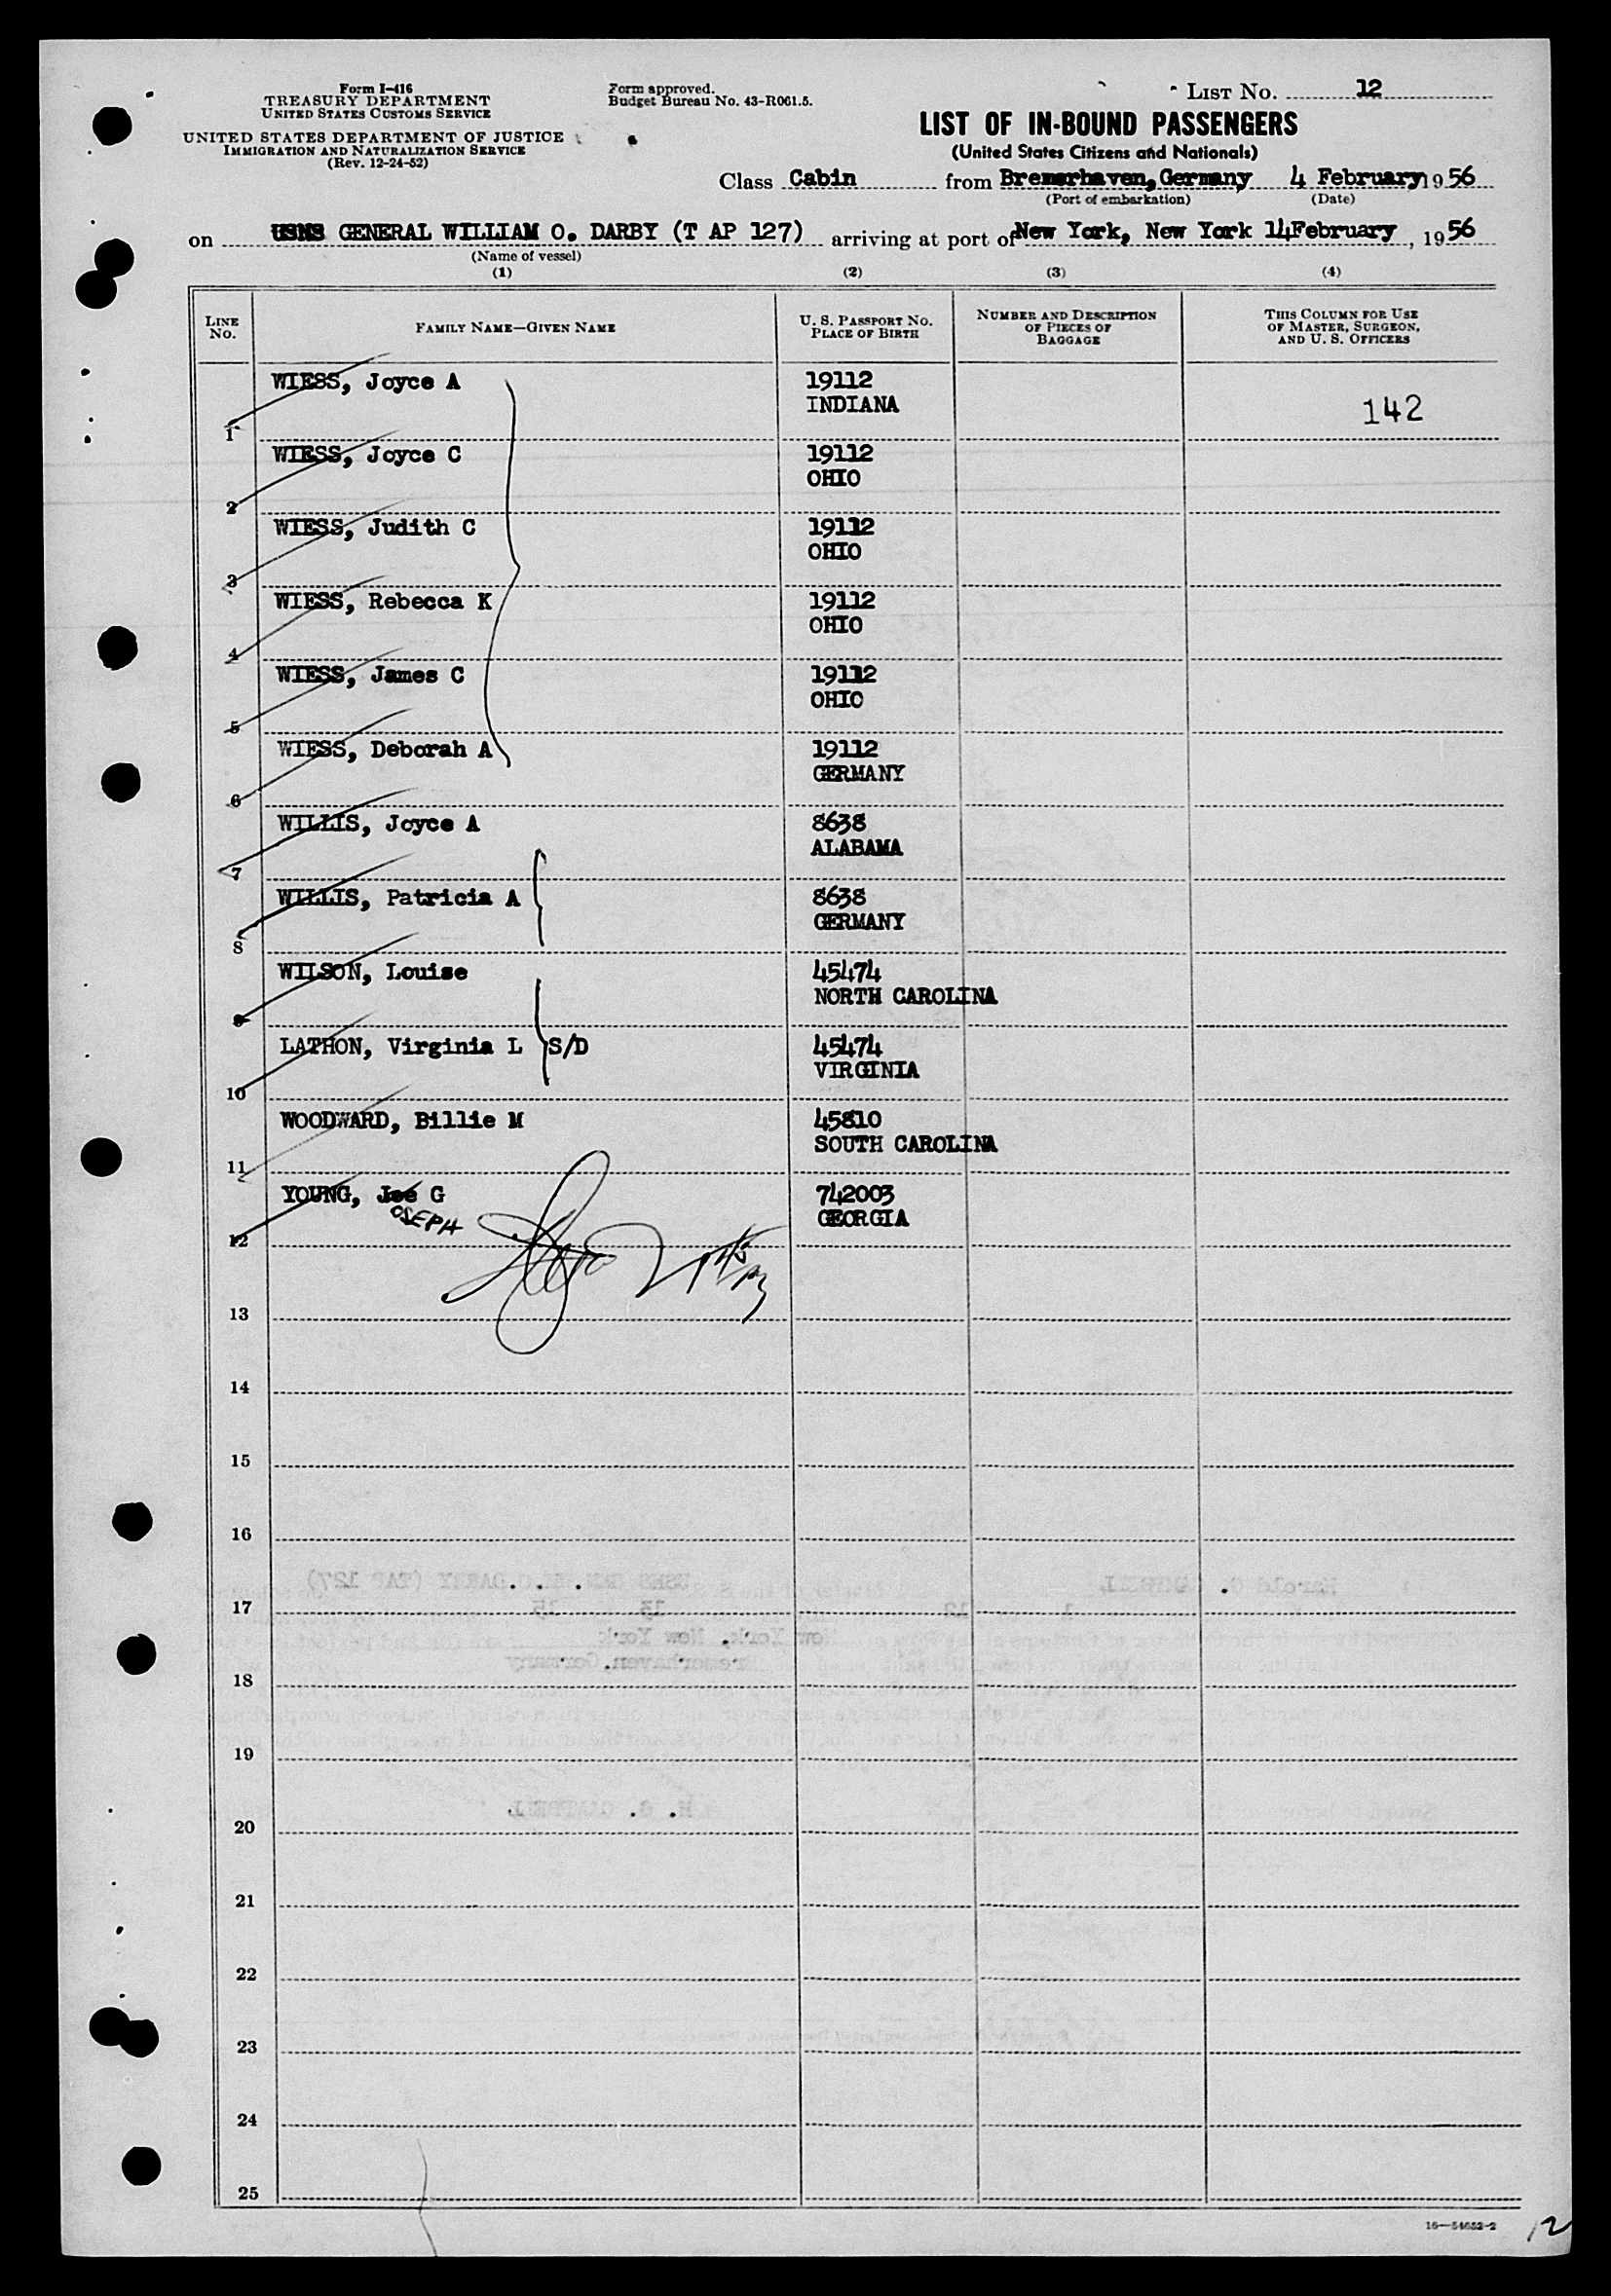 Form I-416
TREASURY DEPARTMENT
UNITED STATES CUSTOMS SERVICE
UNITED STATES DEPARTMENT OF JUSTICE
IMMIGRATION AND NATURALIZATION SERVICE
(Rev. 12-24-52)
Form approved.
Budget Bureau No. 43-R061.5.
LIST No. 12
LIST OF IN-BOUND PASSENGERS
(United States Citizens and Nationals)
Class Cabin from Bremerhaven, Germany 4 February 1956
(Port of embarkation) (Date)
on USNS GENERAL WILLIAM O. DARBY (T AP 127) arriving at port of New York, New York 14 February, 1956
(Name of vessel)
(1) (2) (3) (4)
LINE No. FAMILY NAME—GIVEN NAME U. S. PASSPORT No. PLACE OF BIRTH NUMBER AND DESCRIPTION OF PIECES OF BAGGAGE THIS COLUMN FOR USE OF MASTER, SURGEON, AND U. S. OFFICERS
WIESS, Joyce A 19112
INDIANA 142
1
WIESS, Joyce C 19112
OHIO
2
WIESS, Judith C 19112
OHIO
3
WIESS, Rebecca K 19112
OHIO
4
WIESS, James C 19112
OHIO
5
WIESS, Deborah A 19112
GERMANY
6
WILLIS, Joyce A 8638
ALABAMA
7
WILLIS, Patricia A 8638
GERMANY
8
WILSON, Louise 45474
NORTH CAROLINA
9
LATHON, Virginia L S/D 45474
VIRGINIA
10
WOODWARD, Billie M 45810
SOUTH CAROLINA
11
YOUNG, Joe G 742003
OSEPH GEORGIA
12
13
14
15
16
17
18
19
20
21
22
23
24
25
16—54652-2 12